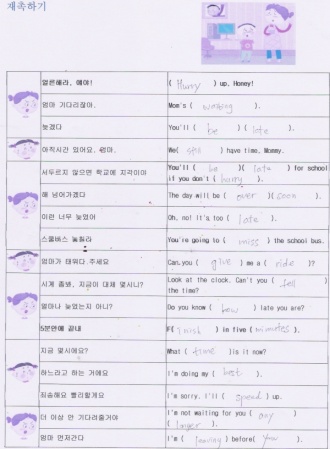 재촉하기
얼른해라, 얘야! ( Hurry ) up, Honey!
엄마 기다리잖아. Mom's ( waiting ).
늦겠다 You'll ( be )( late ).
아직시간 있어요, 엄마. We( still ) have time, Mommy.
서두르지 않으면 학교에 지각이야 You'll ( be )( late ) for school
if you don't ( hurry ).
해 넘어가겠다 The day will be ( over )( soon ).
이런 너무 늦었어 Oh, no! It's too ( late ).
스쿨버스 놓칠라 You're going to ( miss ) the school bus.
엄마가 태워다 주세요 Can you ( give ) me a ( ride )?
시계 좀봐, 지금이 대체 몇시니? Look at the clock. Can't you ( tell )
the time?
얼마나 늦었는지 아니? Do you know ( how ) late you are?
5분안에 끝내 F( inish ) in five ( minutes ).
지금 몇시에요? What ( time ) is it now?
하느라고 하는 거에요 I'm doing my ( best ).
죄송해요 빨리할게요 I'm sorry. I'll ( speed ) up.
더 이상 안 기다려줄거야 I'm not waiting for you ( any )
( longer ).
엄마 먼저간다 I'm ( leaving ) before( you ).